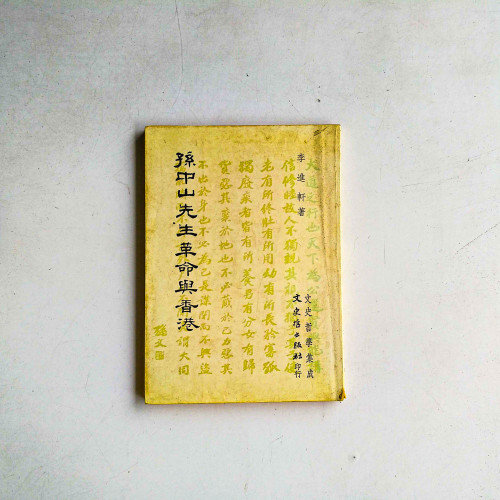 李進軒著
文史哲學集成
文史哲出版社印行
孫中山先生革命與香港
大道之行也天下為公
信修睦故人不獨親其親
老有所終壯有所用幼有所長矜寡孤
獨廢疾者皆有所養男有分女有歸
貨惡其棄於地也不必藏於己力惡其
不出於身也不必為己是謀閉而不興盜
謂大同
孫文